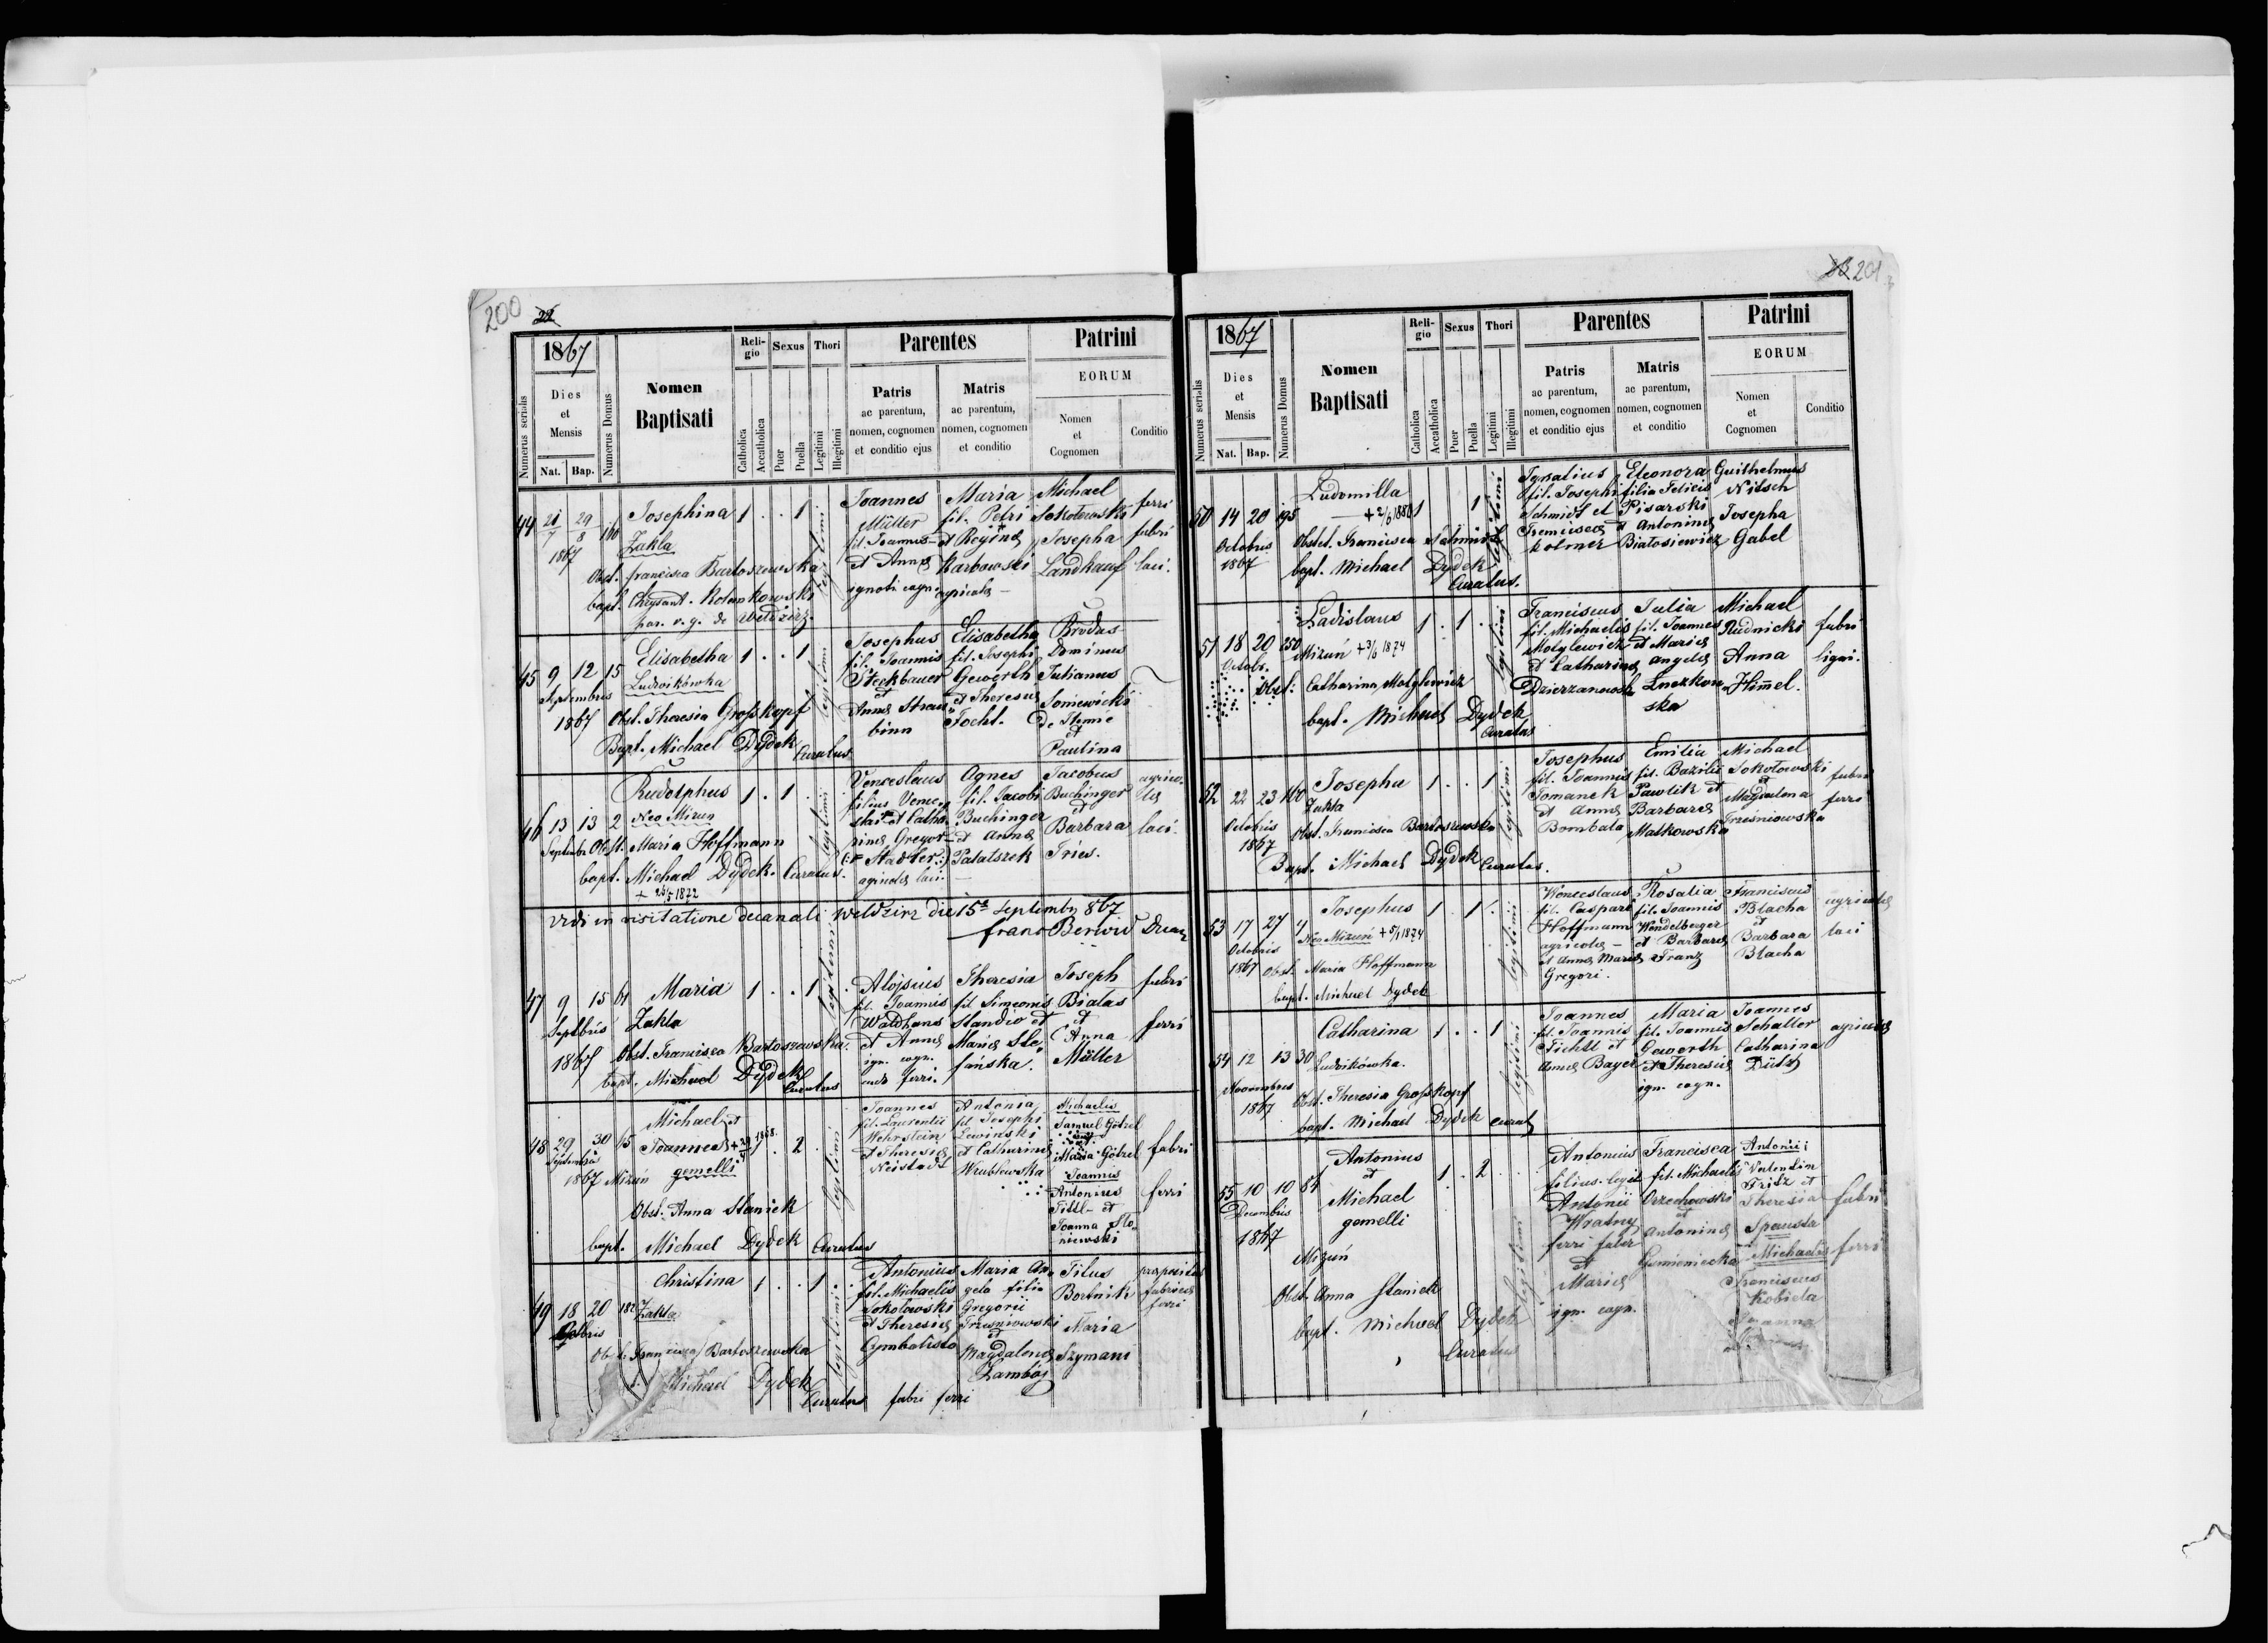 200 22
1867
Numerus serialis
Dies
et
Mensis
Nat. Bap.
Numerus Domus
Nomen
Baptisati
Reli-
gio
Catholica
Accatholica
Sexus
Puer
Puella
Thori
Legitimi
Illegitimi
Parentes
Patris
ac parentum,
nomen, cognomen
et conditio ejus
Matris
ac parentum,
nomen, cognomen
et conditio
Patrini
EORUM
Nomen
et
Cognomen
Conditio
44 21/7 29/8 1867 110
Josephina 1 . . 1 legitimi
Zakla
Obst. francisca Bartoszewska
bapt. Chrysant. Rolankowski
par. v. g. de Weldzirz.
Joannes
Müller
fil. Joannis
et Annæ
ignobi cogn.
Maria
fil. Petri
et Reginæ
Karbowski
agricolæ
Michael
Sokołowski
Josepha
Landkauf
ferri
fabri
laci.
45 9 12 15
Septembris
1867
Elisabetha 1 . . 1 legitimi
Ludwikówka
Obst. Theresia Großkopf
Bapt. Michael Dydek
Curatus
Josephus
fil. Joannis
Steckbauer
et
Annæ Strau-
binn
Elisabetha
fil. Josephi
Geworth
et Theresiæ
Tochl.
Brodas
Dominus
Julianus
Soniewicki
et
Paulina
46 13 13 2
Septembr.
Rudolphus 1 . 1 . legitimi
Neo Mizun
Obst. Maria Hoffmann
bapt. Michael Dydek. Curatus.
+ 26/5 1872
Venceslaus
filius Vences-
lai et Catha-
rinæ Gregor
Stadler
agricolæ laci.
Agnes
fil. Jacobi
Buchinger
et Annæ
Palatszek
Jacobus
Buchinger
et
Barbara
Tries.
agrico-
læ
laci.
Vidi in visitatione decanali Weldzirz die 15ª Septembr 867
franc Berwid Decan
47 9 15 61
Septbris
1867
Maria 1 . . 1 legitimi
Zakla
Obst. Francisca Bartoszewska.
bapt. Michael Dydek
Curatus
Alojsius
fil. Joannis
Waldhans
et Annæ
ign. cogn.
ferri.
Theresia
fil. Simeonis
Slandio et
Mariæ Ste-
fańska.
Joseph
Białas
et
Anna
Müller
fabri
ferri
48 29 30 65
Septembris
1867 Mizuń
Michael et
Joannes + 1868.
gemelli
. 2 . legitimi
Obst. Anna Staniek
bapt. Michael Dydek Curatus
Joannes
fil. Laurentii
Wehrstein
et Theresiæ
Neistadt
Antonia
fil. Josephi
Lewinski
et Catharinæ
Wrublewska
Michaelis
Samuel Götzel
et
Maria Götzel
Joannis
Antonius
Tittl et
Joanna Sło-
niewski
fabri
ferri
49 18 20 182
Octbris
Christina 1 . . 1 legitimi
Zakla
Obst. Francisca Bartoszewska
Michael Dydek
Curatus fabri ferri
Antonius
fil. Michaelis
Sokołowski
et Theresiæ
Cymbalista
Maria An-
gela filia
Gregorii
Trześniowski
et
Magdalenæ
Zambój
Titus
Bortnik
Maria
Szymani
præpositus
fabricæ
ferri
23 201
1867
Numerus serialis
Dies
et
Mensis
Nat. Bap.
Numerus Domus
Nomen
Baptisati
Reli-
gio
Catholica
Accatholica
Sexus
Puer
Puella
Thori
Legitimi
Illegitimi
Parentes
Patris
ac parentum,
nomen, cognomen
et conditio ejus
Matris
ac parentum,
nomen, cognomen
et conditio
Patrini
EORUM
Nomen
et
Cognomen
Conditio
50 14 20 195
Octobris
1867
Ludomilla 1 1 legitimi
+ 2/6 1886
Obstet. Francisca Schmidt
bapt. Michael Dydek
Curatus.
Ignatius
fil. Josephi
Schmidt et
Franciscæ
Kolmer
Eleonora
filia Felicis
Pisarski
et Antoninæ
Białosiewicz
Guilhelmus
Nitsch
Josepha
Gabel
51 18 20 250
Octobr.
Ladislaus 1 . 1 . legitimi
Mizuń + 3/6 1874
Obst. Catharina Motylewicz
bapt. Michael Dydek
Curatus
Franciscus
fil. Michaelis
Motylewicz
et Catharinæ
Dzierzanowsk
Julia
fil. Joannes
et Mariæ
Angelæ
Łuczkow-
ska
Michael
Rudnicki
Anna
Himmel.
fabri
ligni.
52 22 23 160
Octobris
1867
Josepha 1 . . 1 legitimi
Zakla
Obst. Francisca Bartoszewska
Bapt. Michael Dydek Curatus.
Josephus
fil. Joannis
Tomanek
et Annæ
Bombala
Emilia
fil. Bazilii
Pawlik et
Barbaræ
Malkowska
Michael
Sokołowski
et
Magdalena
Trześniowska
fabri
ferri
53 17 27 7
Octobris
1867
Josephus 1 . 1 . legitimi
Neo Mizuń + 5/1 1874
Obst. Maria Hoffmann
bapt. Michael Dydek
Wenceslaus
fil. Caspari
Hoffmann
agricolæ
et Annæ Mariæ
Gregori.
Rosalia
fil. Joannis
Wendelberger
et Barbaræ
Franz
Franciscus
Błacha
et
Barbara
Błacha
agricolæ
laci
54 12 13 30
Novembris
1867
Catharina 1 . . 1 legitimi
Ludwikówka.
Obst. Theresia Großkopf
bapt. Michael Dydek Curat
Joannes
fil. Joannis
Fichtl et
Annæ Bayer
Maria
fil. Joannis
Geworth
et Theresiæ
ign. cogn.
Joannes
Schaller
Catharina
agricolæ
55 10 10 84
Decembris
1867
Antonius
et
Michael
gemelli
1 . 2 . legitimi
Mizuń
Obst. Anna Staniek
bapt. Michael Dydek
Curatus
Antonius
filius legit.
Antonii
Wratny
ferri faber
et
Mariæ
ign. cogn.
Francisca
fil. Michaelis
Orzechowski
et
Antoninæ
Antonii;
Valentin
Fritz et
Theresia
Spausta
Michaelis
Franciscus
Kobiela
Joanna
fabri
ferri